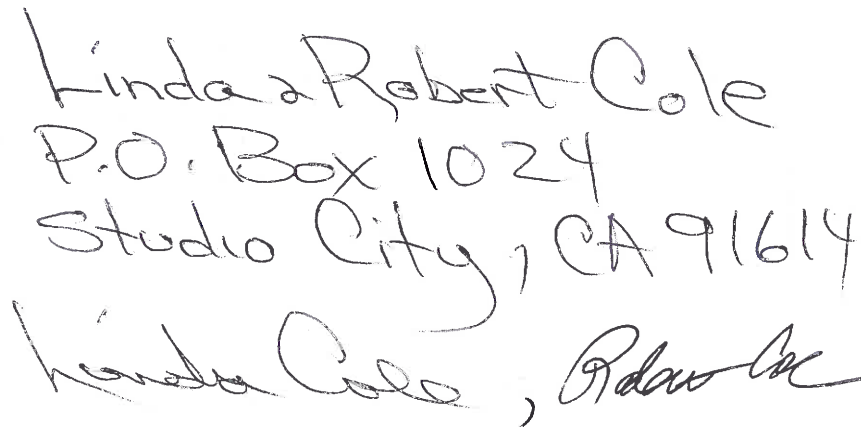 Linda & Robert Cole
P.O. Box 1024
Studio City, CA 91614
Linda Cole, Robert Cole